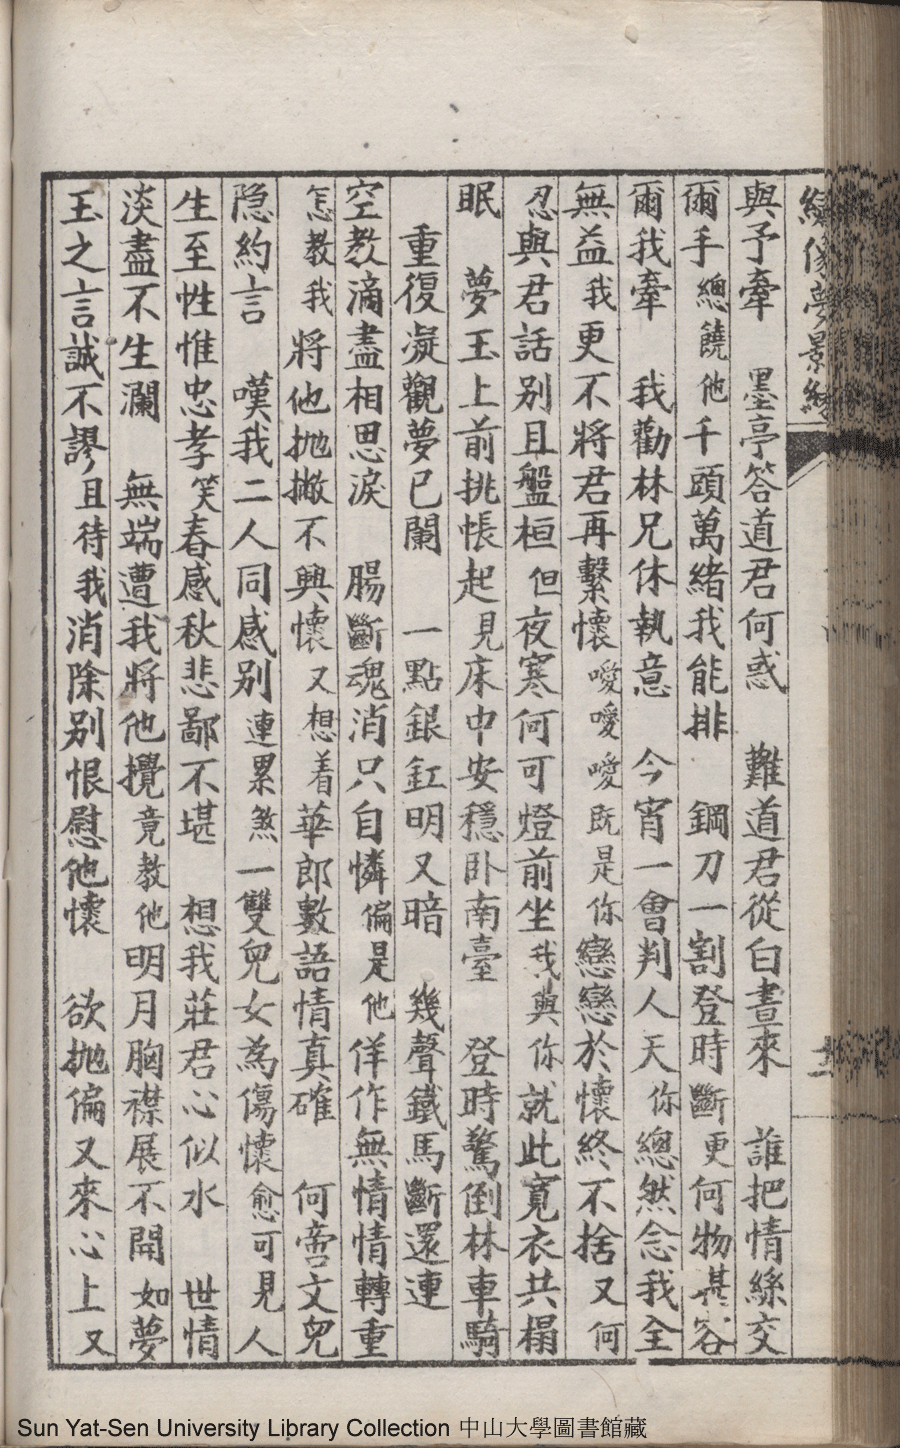 繡像夢影緣
與予牽　墨亭答道君何惑　難道君從白晝來　誰把情絲交
爾手總饒他千頭萬緒我能排　鋼刀一割登時斷更何物甚容
爾我牽　我勸林兄休執意　今宵一會判人天你總然念我全
無益我更不將君再繫懷噯噯噯既是你戀戀於懷終不捨又何
忍與君話別且盤桓但夜寒何可燈前坐我與你就此寬衣共榻
眠　夢玉上前挑帳起見床中安穩卧南臺　登時驚倒林車騎
重復凝觀夢已闌　一點銀釭明又暗　幾聲鐵馬斷還連
空教滴盡相思淚　腸斷魂消只自憐偏是他佯作無情情轉重
怎教我將他拋撇不興懷又想着華郎數語情真確　何啻文兒
隐約言　嘆我二人同感別連累煞一雙兒女為傷懷愈可見人
生至性惟忠孝笑春感秋悲鄙不堪　想我莊君心似水　世情
淡盡不生瀾　無端遭我將他攪竟教他明月胸襟展不開如夢
玉之言誠不謬且待我消除別恨慰他懷　欲拋偏又來心上又
Sun Yat-Sen University Library Collection 中山大學圖書館藏